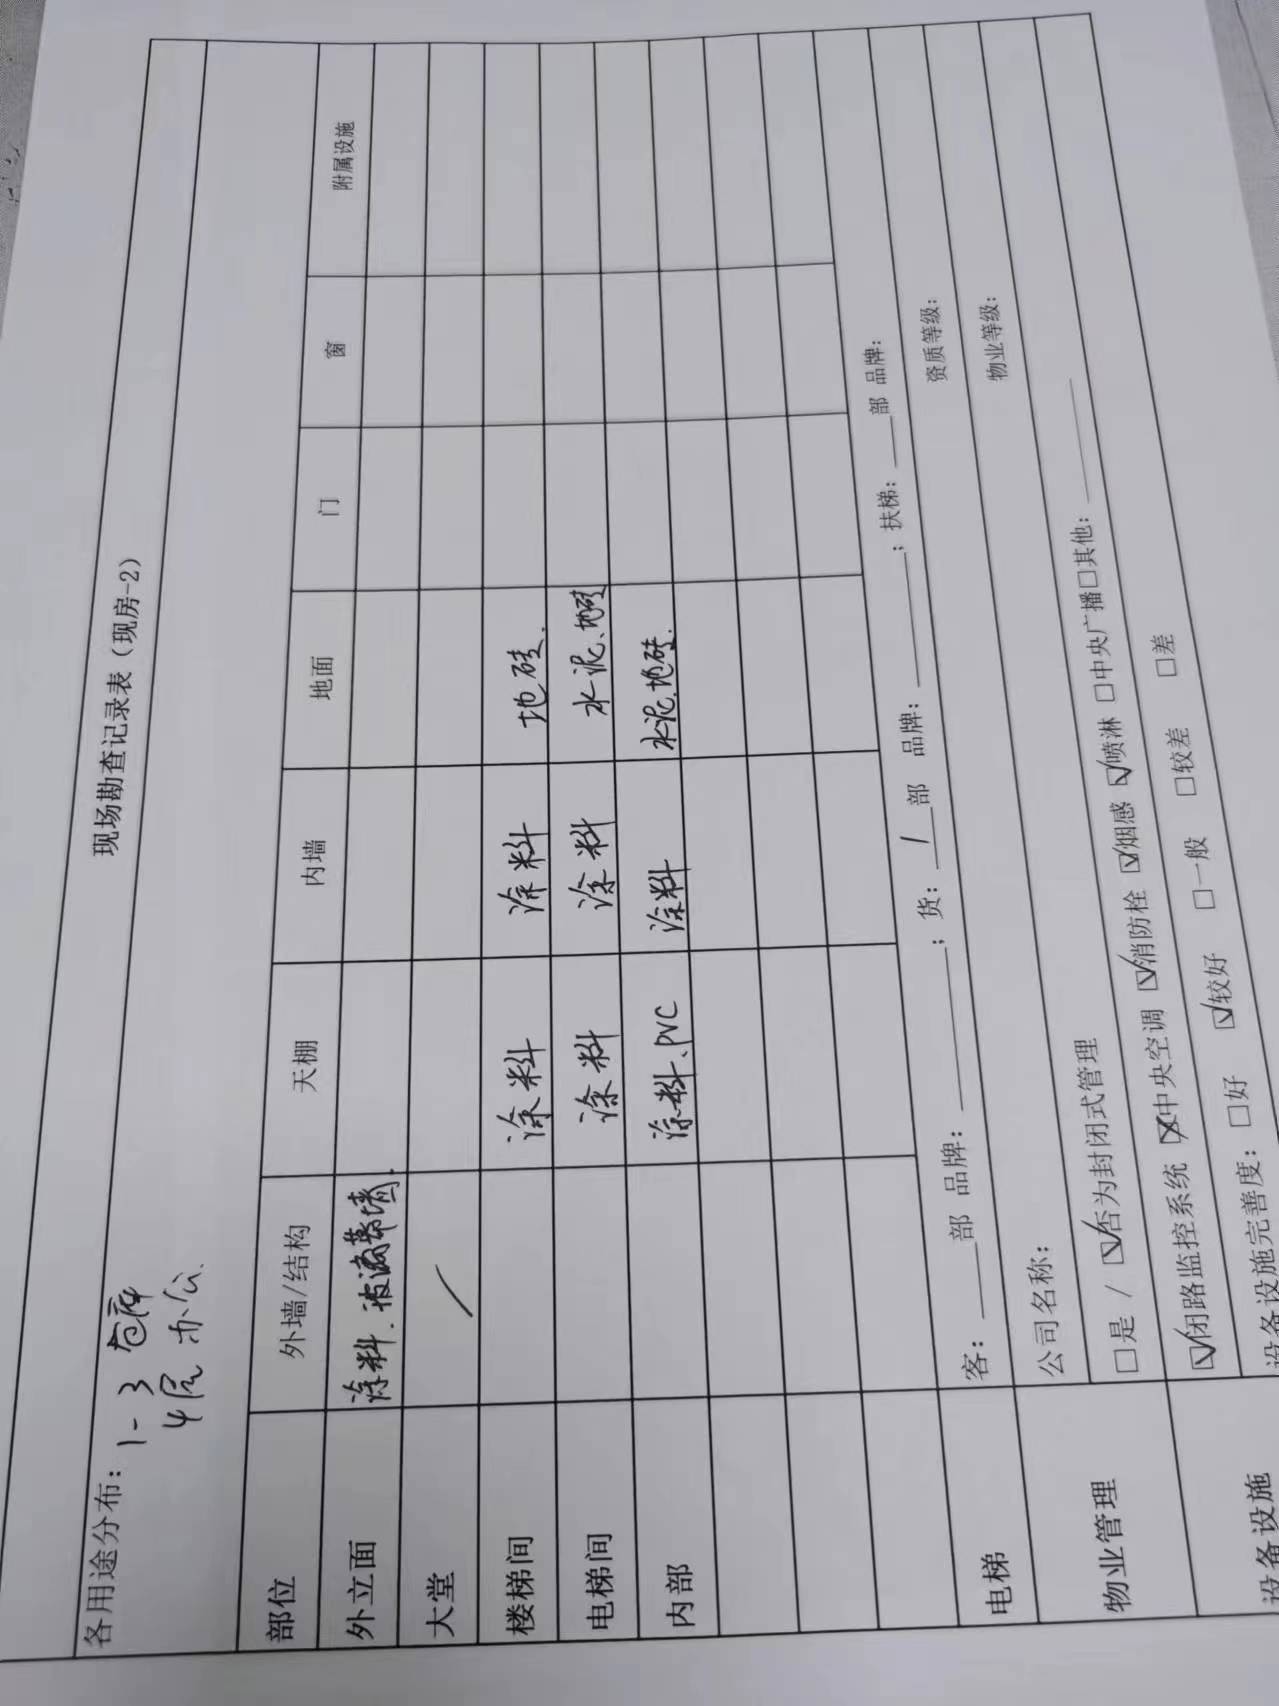 现场勘查记录表（现房-2）
各用途分布：1-3 仓库
4层 办公
部位 外墙/结构 天棚 内墙 地面 门 窗 附属设施
外立面 涂料、玻璃幕墙
大堂 /
楼梯间 涂料 涂料 地砖
电梯间 涂料 涂料 水泥、地砖
内部 涂料、PVC 涂料 水泥、地砖
电梯 客：____部 品牌：________；货：__1__部 品牌：________；扶梯：____部 品牌：
物业管理 公司名称： 资质等级：
□是 / ☑否为封闭式管理 物业等级：
设备设施 ☑闭路监控系统 ☒中央空调 ☑消防栓 ☑烟感 ☑喷淋 □中央广播□其他：________
设备设施完善度： □好 ☑较好 □一般 □较差 □差